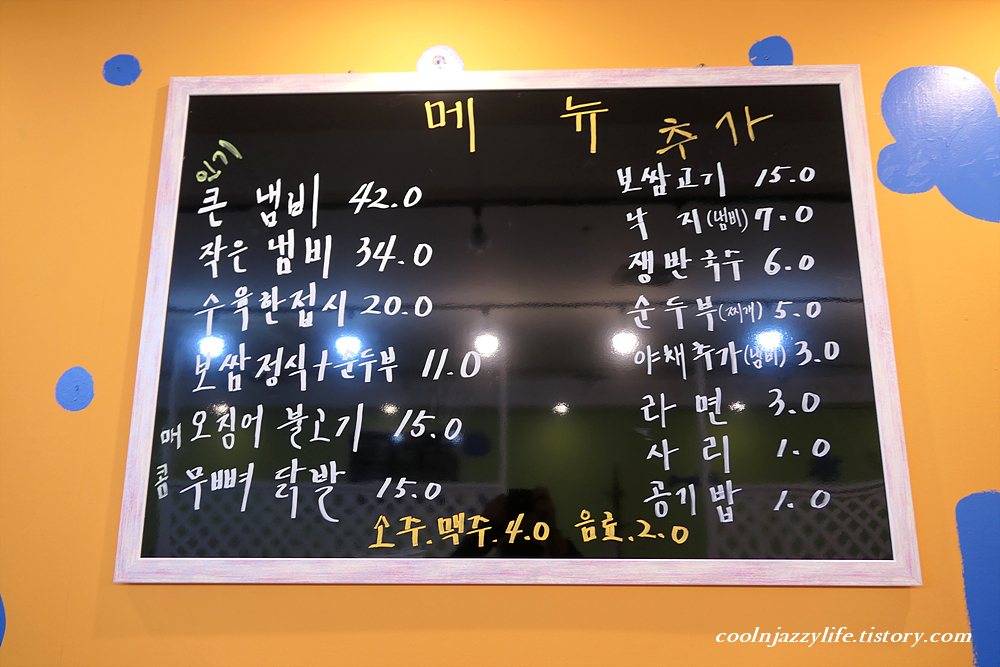 메 뉴
인기
큰 냄비 42.0
작은 냄비 34.0
수육한접시 20.0
보쌈정식+순두부 11.0
매콤
오징어 불고기 15.0
무뼈 닭발 15.0
추가
보쌈고기 15.0
낙 지(냄비) 7.0
쟁반국수 6.0
순두부(찌개) 5.0
야채추가(냄비) 3.0
라 면 3.0
사 리 1.0
공기밥 1.0
소주.맥주.4.0 음료.2.0
coolnjazzylife.tistory.com